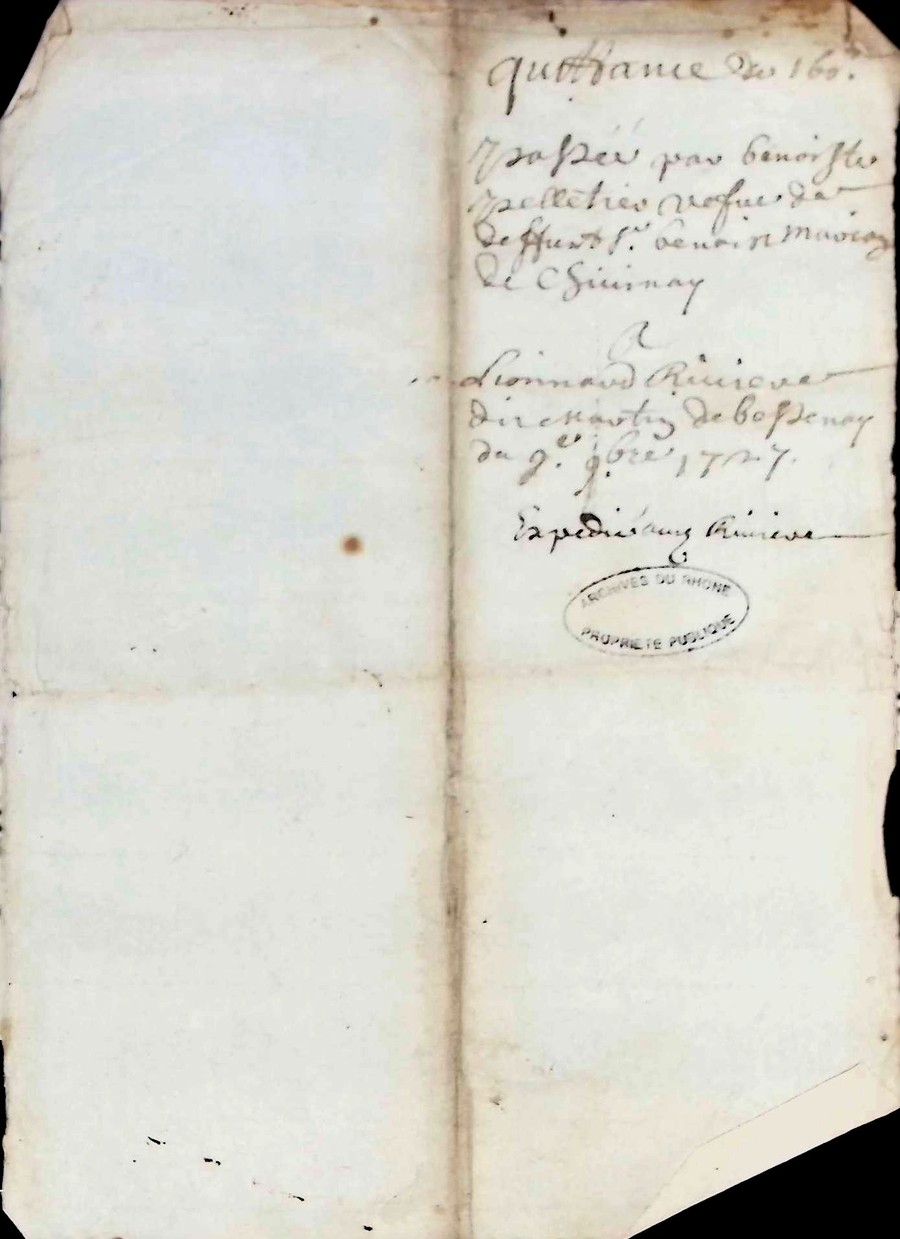 quittance de 160#
passée par benoiste
pelletier vefue de
deffunt sr. benoist
de Chiuinay
A
Lionnard Riuiere
dit Martin de bessenay
du 9.e 9.bre 1727.
Expedié aud Riuiere
ARCHIVES DU RHONE
PROPRIETE PUBLIQUE